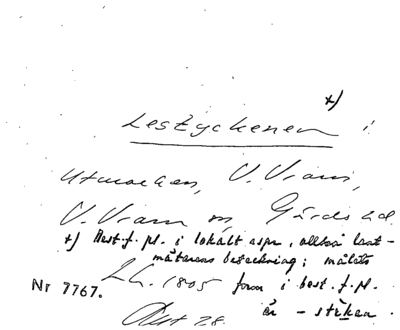 x)
Lestyckenen i
utmarken, V. Vram,
V. Vram sn, Gärds hd.
x) Best. f. pl. i lokalt uspr., alltså lant-
mätarens beteckning; målets
L.L. 1805 form i best. f. pl.
Nr 7767. är - stýken.
Akt 28.